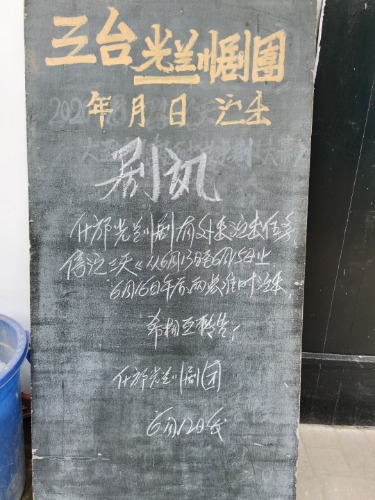 三台光兰川剧團
年 月 日 演出
剧讯
什邡光兰川剧有外来演出任务
停演三天《从6月13日至6月15日止
6月16日午后两点准时演出,
希相互转告!
什邡光兰川剧团
6月12日